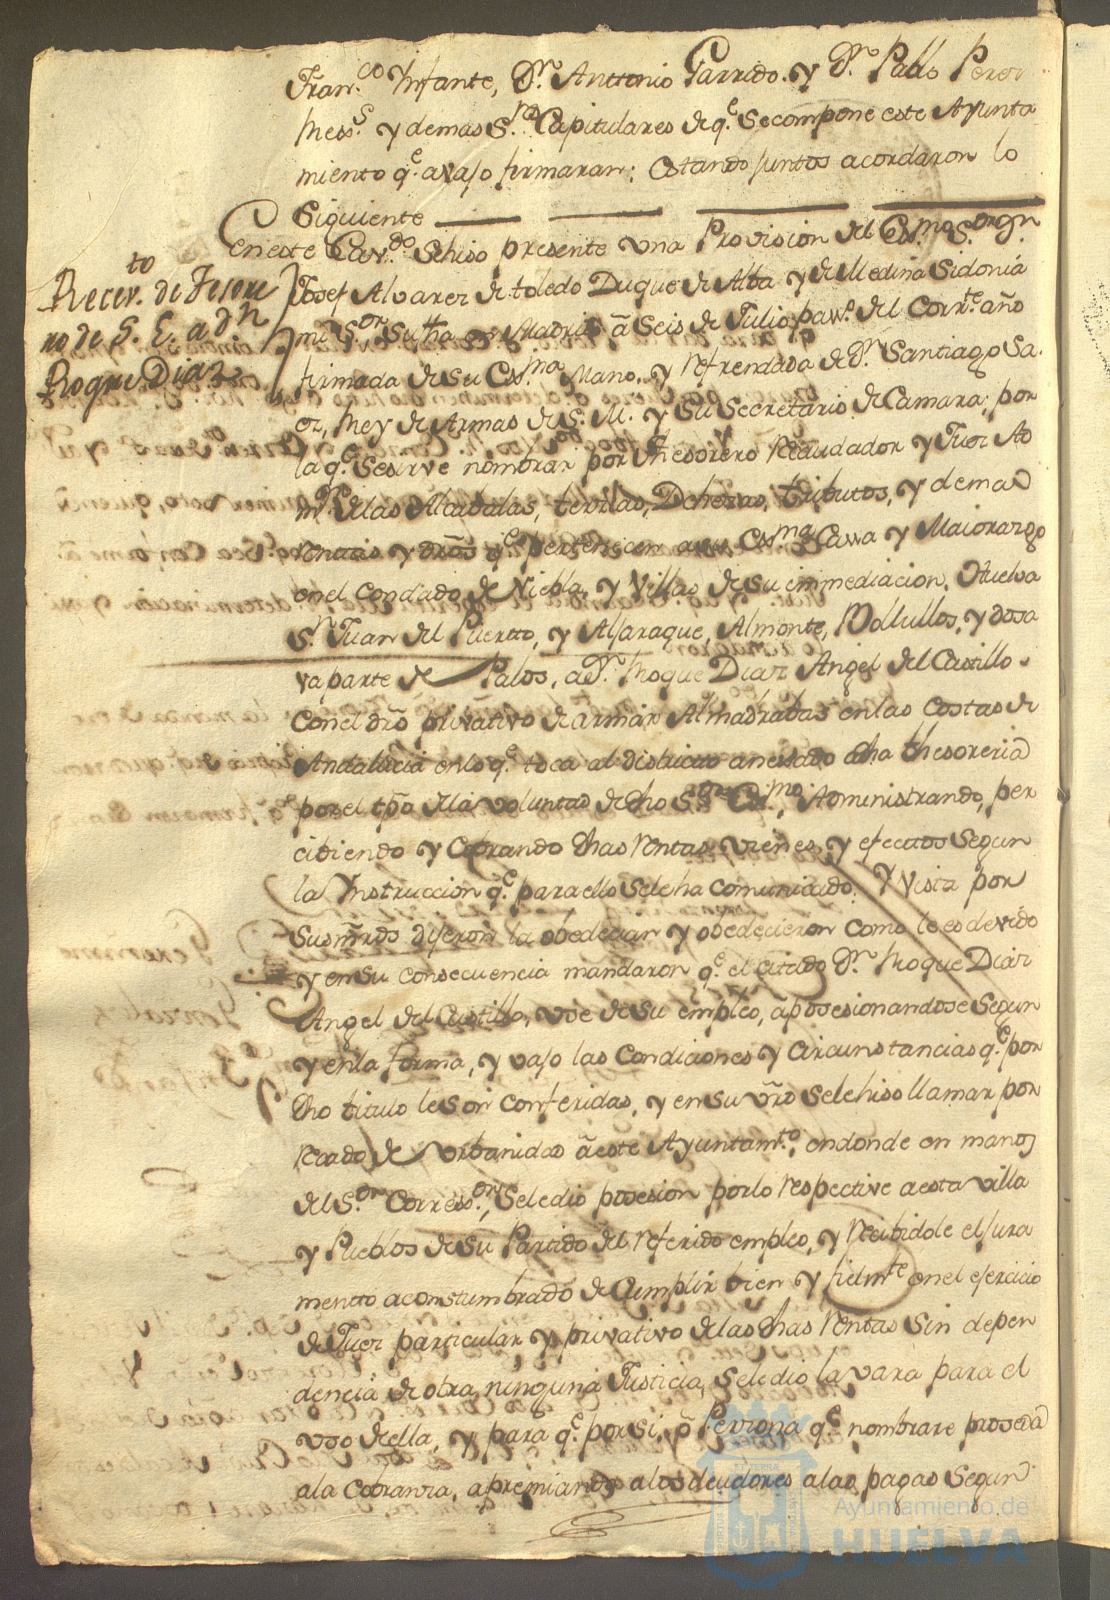 Fran.co Ynfante, Dn. Anttonio Garrido. y Dn. Pablo Perez
y demas S.res Capitulares de q.e se compone este Ayunta
miento q.e avajo firmaran: Estando Juntos acordaron lo
Siguiente
Recev.to de Tesore
ro de S. E. a dn
Roque Diaz
En este Cav.do Se hiso presente una Provision del Ex.mo S.or dn.
Josef Alvarez de toledo Duque de Alba y de Medina Sidonia
mi S.or Su fha en Madrid â Seis de Julio pas.o del Corr.te año
firmada de su Ex.ma Mano, y Refrendada de Dn Santiago Sa.
ez, Rey de Armas de S. M. y Su Secretario de Camara; por
la q.e Se sirve nombrar por Thesorero Recaudador y Juez Ad
m.or de las Alcabalas, tercias, Dehezas, tributos, y demas
Rentas y dros q.e pertenecen a su Ex.ma Cassa y Maiorazgo
en el Condado de Niebla, y Villas de su immediacion, Huelva
Sn Juan del Puerto, y Aljaraque, Almonte, Bollullos, y dosa
va parte de Palos, a Dn. Roque Diaz Angel del Castillo.
Con el dro privativo de armar Almadrabas en las Costas de
Andalucia en lo q.e toca al districto anexado a dha thesoreria
por el tpo de la voluntad de dho S.or Ex.mo, Administrando, per
cibiendo y Cobrando dhas Rentas vienes, y efectos Segun
la Ynstruccion q.e para ello Se le ha comunicado. Y vista por
Sus mrds dijeron la obedecian y obedecieron como lo es devido
y en su consecuencia mandaron q.e el citado Dn. Roque Diaz
Angel del Castillo, use de su empleo, aposesionandose Segun
y en la forma, y vajo las Condiciones y Circunstancias q.e por
dho titulo le son conferidas, y en su vro se le hiso llamar por
Recado de urbanidad â este Ayuntam.to, en donde en manos
del S.or Corress.or, Se le dio posesion por lo respective a esta villa
y Pueblos de su Partido del referido empleo, y Recibidole el Jura
mento acostumbrado de Cumplir bien y fielm.te en el ejercicio
de Juez particular y privativo de las dhas Rentas Sin depen
dencia de otra ninguna Justicia, Se le dio la vara para el
uso de ella, y para q.e por si, o Perzona q.e nombrare proseda
a la Cobranza, apremiando a los deudores a las pagas Segun
Ayuntamiento de
HUELVA